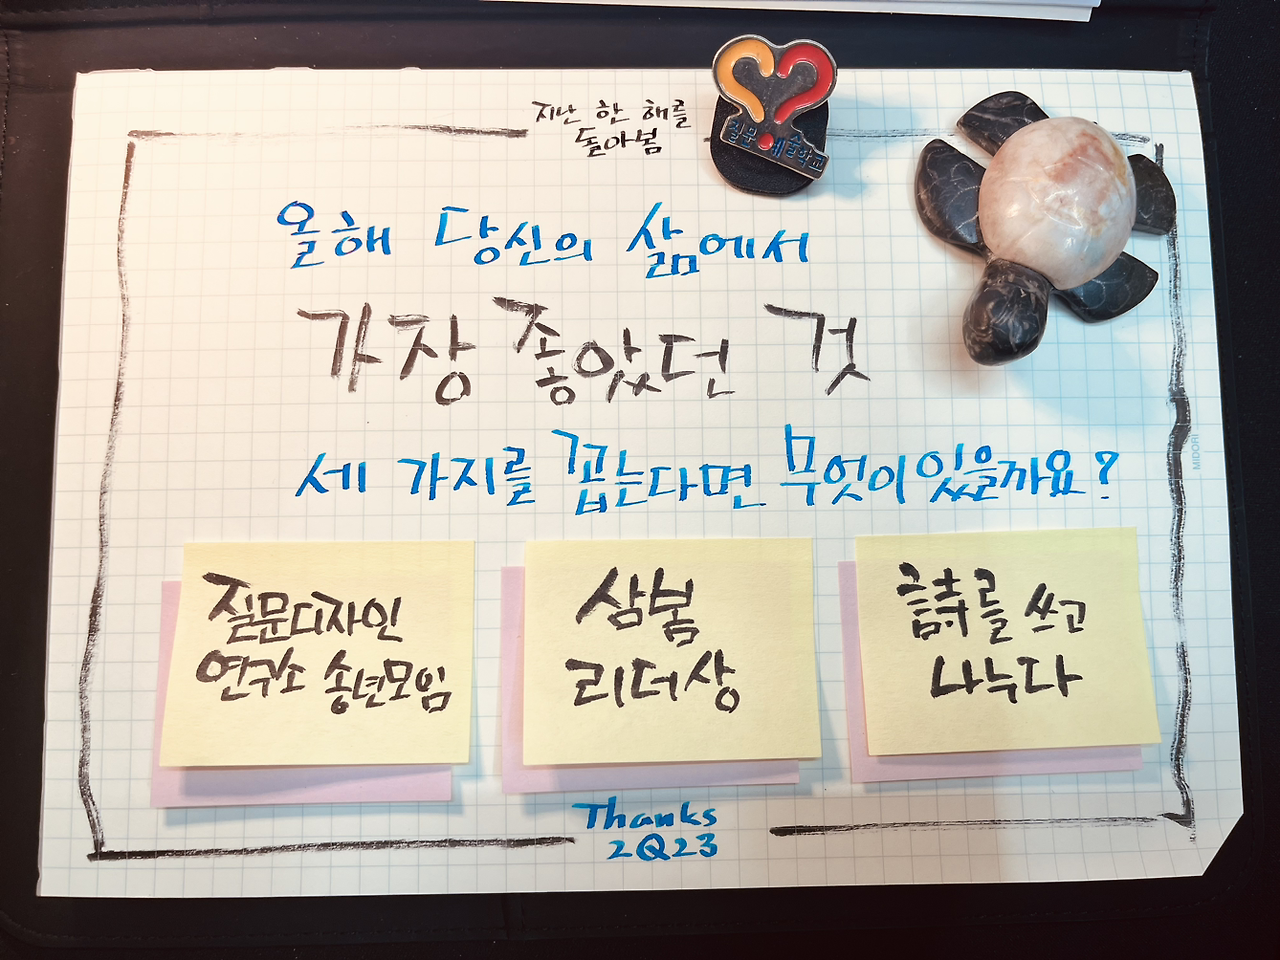 지난 한 해를
돌아봄
질문예술학교
올해 당신의 삶에서
가장 좋았던 것
세 가지를 꼽는다면 무엇이 있을까요?
MIDORI
질문디자인
연구소 송년모임
삼봄
리더상
詩를 쓰고
나누다
Thanks
2Q23